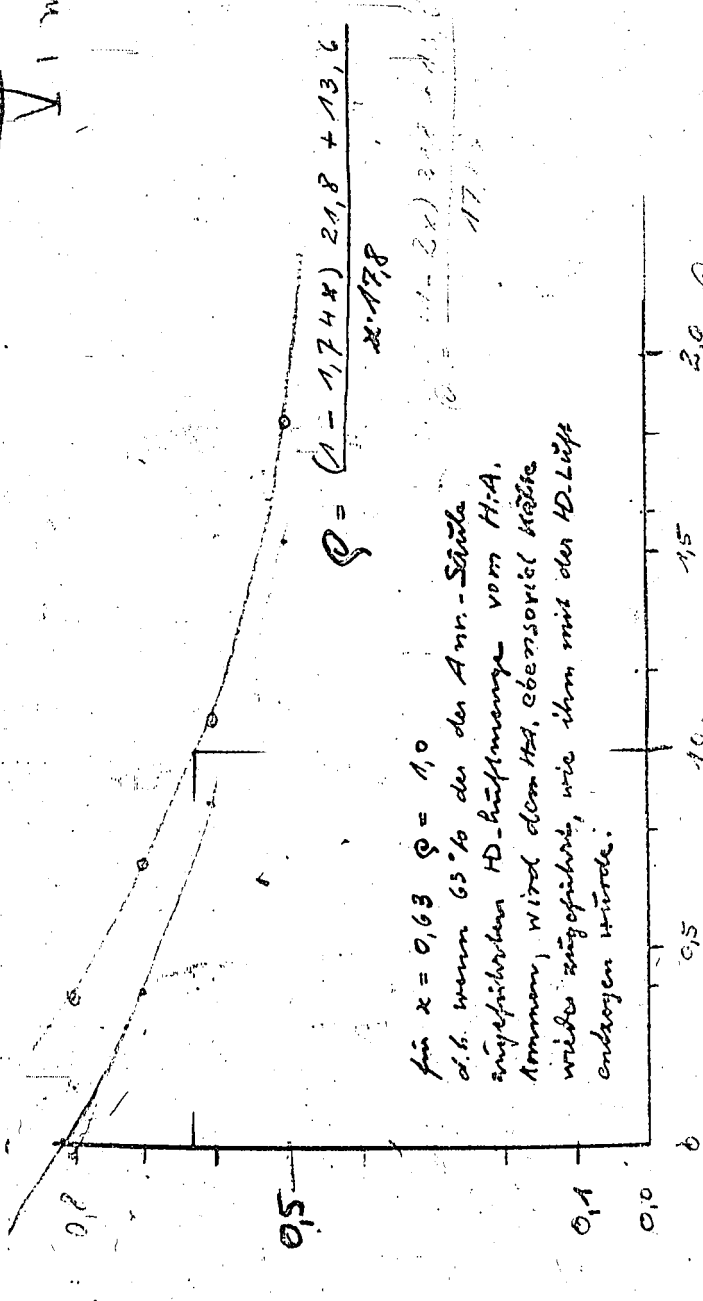 φ = (1 - 1,74x) 21,8 + 13,6
x·17,8
für x = 0,63 φ = 1,0
d.h. wenn 63 % der der Ann.-Säule
zugeführten HD-Luftmenge vom H.A.
kommen, wird dem HA. ebensoviel Kälte
wieder zugeführt, wie ihm mit der HD-Luft
entzogen wurde.
0,8
0,5
0,1
0,0
0
0,5
1,0
1,5
2,0